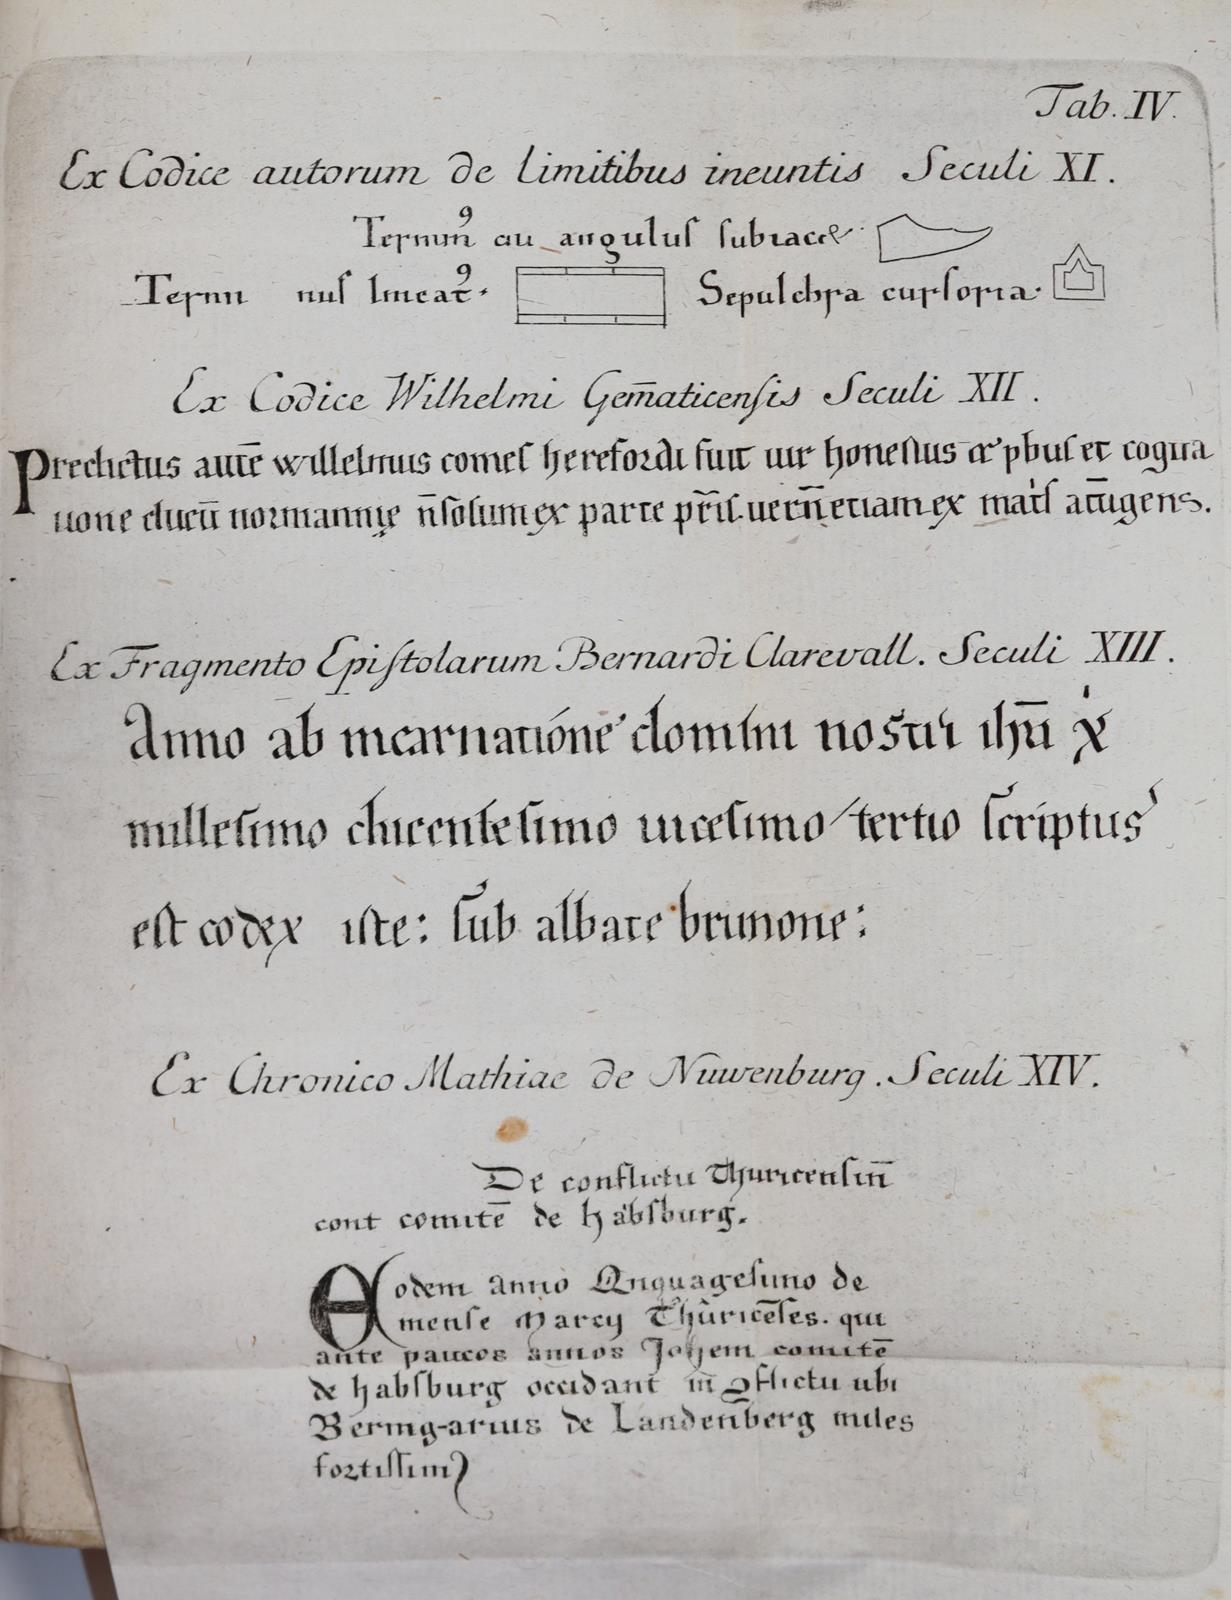 Tab. IV.
Ex Codice autorum de limitibus ineuntis Seculi XI.
Terminꝰ cu angulus subiace
Termi nus lineatꝰ. Sepulchra cursoria.
Ex Codice Wilhelmi Gem̄aticensis Seculi XII.
Predictus autē willelmus comes herefordi fuit uir honestus & pbus et cogna
tione ducū normannię n̄ solum ex parte pr̄is. uer̄n etiam ex mat'is att̄igens.
Ex Fragmento Epistolarum Bernardi Clarevall. Seculi XIII.
Anno ab incarnatióne domini nostri ihū x̓
millesimo ducentesimo uicesimo tertio scriptus
est codex iste: sub abbate brunone:
Ex Chronico Mathiae de Nuwenburg. Seculi XIV.
De conflictu Thuricensiū
cont comitē de habsburg.
Eodem anno Qnquagesimo de
mense Marcy Thuricēses. qui
ante paucos annos Johem comitē
de habsburg occidant in ꝯflictu ubi
Bering-arius de Landenberg miles
fortissimꝰ